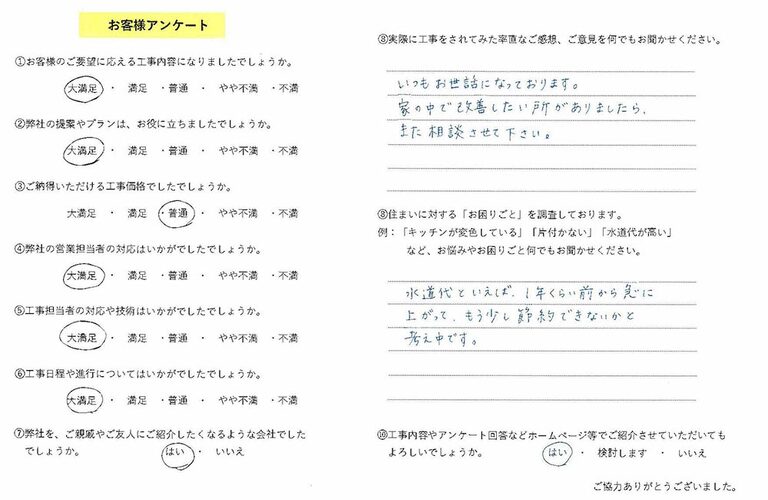 お客様アンケート
①お客様のご要望に応える工事内容になりましたでしょうか。
大満足 ・ 満足 ・普通 ・ やや不満 ・不満
②弊社の提案やプランは、お役に立ちましたでしょうか。
大満足 ・ 満足 ・普通 ・ やや不満 ・不満
③ご納得いただける工事価格でしたでしょうか。
大満足 ・ 満足 ・普通 ・ やや不満 ・不満
④弊社の営業担当者の対応はいかがでしたでしょうか。
大満足 ・ 満足 ・普通 ・ やや不満 ・不満
⑤工事担当者の対応や技術はいかがでしたでしょうか。
大満足 ・ 満足 ・普通 ・ やや不満 ・不満
⑥工事日程や進行についてはいかがでしたでしょうか。
大満足 ・ 満足 ・普通 ・ やや不満 ・不満
⑦弊社を、ご親戚やご友人にご紹介したくなるような会社でした
でしょうか。 はい ・ いいえ
⑧実際に工事をされてみた率直なご感想、ご意見を何でもお聞かせください。
いつもお世話になっております。
家の中で改善したい所がありましたら、
また相談させて下さい。
⑧住まいに対する「お困りごと」を調査しております。
例：「キッチンが変色している」「片付かない」「水道代が高い」
など、お悩みやお困りごと何でもお聞かせください。
水道代といえば、1年くらい前から急に
上がって、もう少し節約できないかと
考え中です。
⑩工事内容やアンケート回答などホームページ等でご紹介させていただいても
よろしいでしょうか。 はい ・ 検討します ・ いいえ
ご協力ありがとうございました。